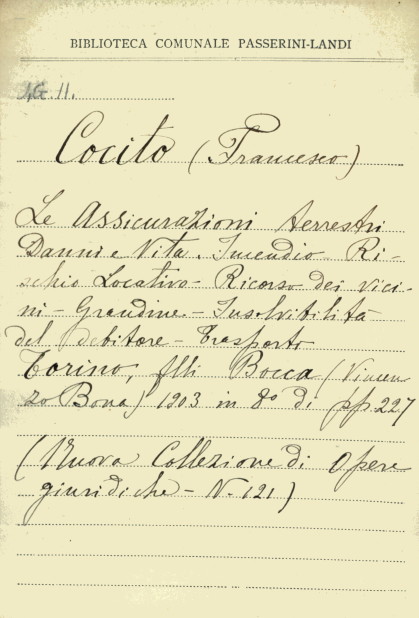 BIBLIOTECA COMUNALE PASSERINI-LANDI
I.G.11.
Cocito (Francesco)
Le Assicurazioni terrestri
Danni e Vita. Incendio Ri-
schio Locativo - Ricorso dei vici-
ni - Grandine - Insolvibilità
del debitore - trasporto
Torino, flli Bocca (Vincen
zo Bona) 1903 in 8º di pp. 227
(Nuova Collezione di Opere
giuridiche - N. 121)